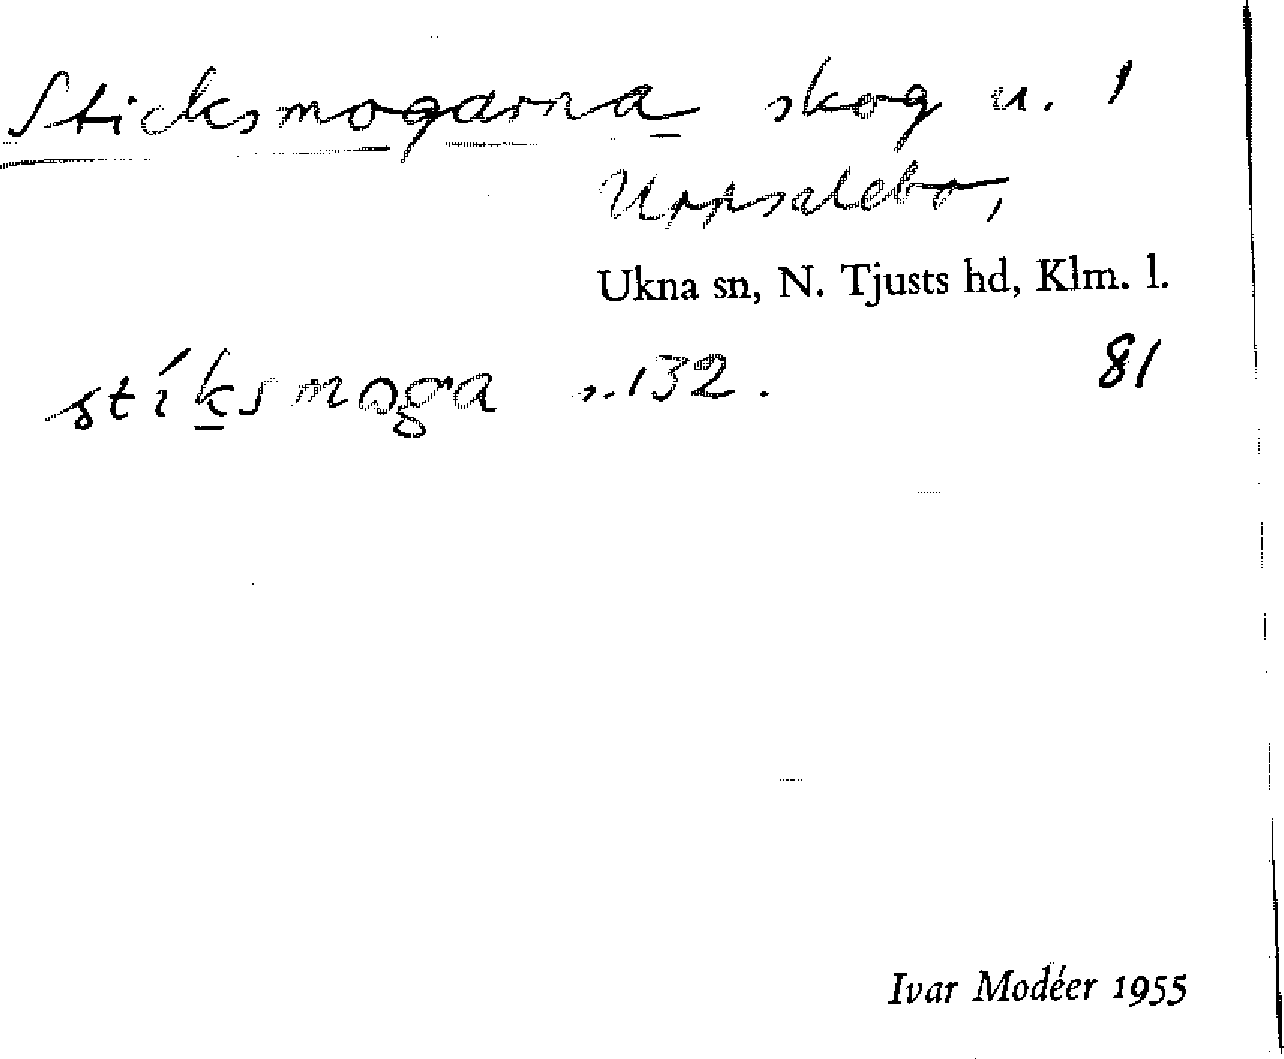 Sticksmogarna skog u. 1
Uppsalebo,
Ukna sn, N. Tjusts hd, Klm. l.
stíksmoga s. 132. 81
Ivar Modéer 1955